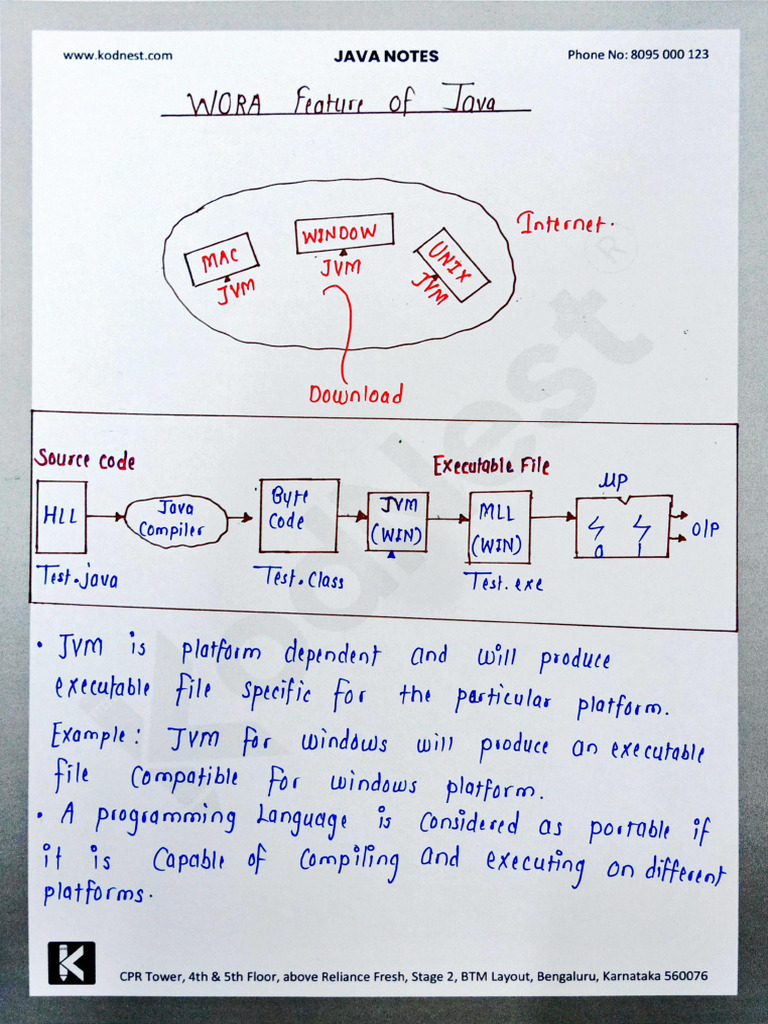 www.kodnest.com
JAVA NOTES
Phone No: 8095 000 123
WORA Feature of Java
Internet.
MAC
JVM
WINDOW
JVM
UNIX
JVM
Download
Source code
Executable File
μP
HLL
Java
Compiler
Byte
Code
JVM
(WIN)
MLL
(WIN)
0 1
O/P
Test.java
Test.Class
Test.exe
• JVM is platform dependent and will produce
executable file specific for the particular platform.
Example: JVM for windows will produce an executable
file Compatible for windows platform.
• A programming Language is Considered as portable if
it is Capable of Compiling and executing on different
platforms.
KodNest
R
K
CPR Tower, 4th & 5th Floor, above Reliance Fresh, Stage 2, BTM Layout, Bengaluru, Karnataka 560076